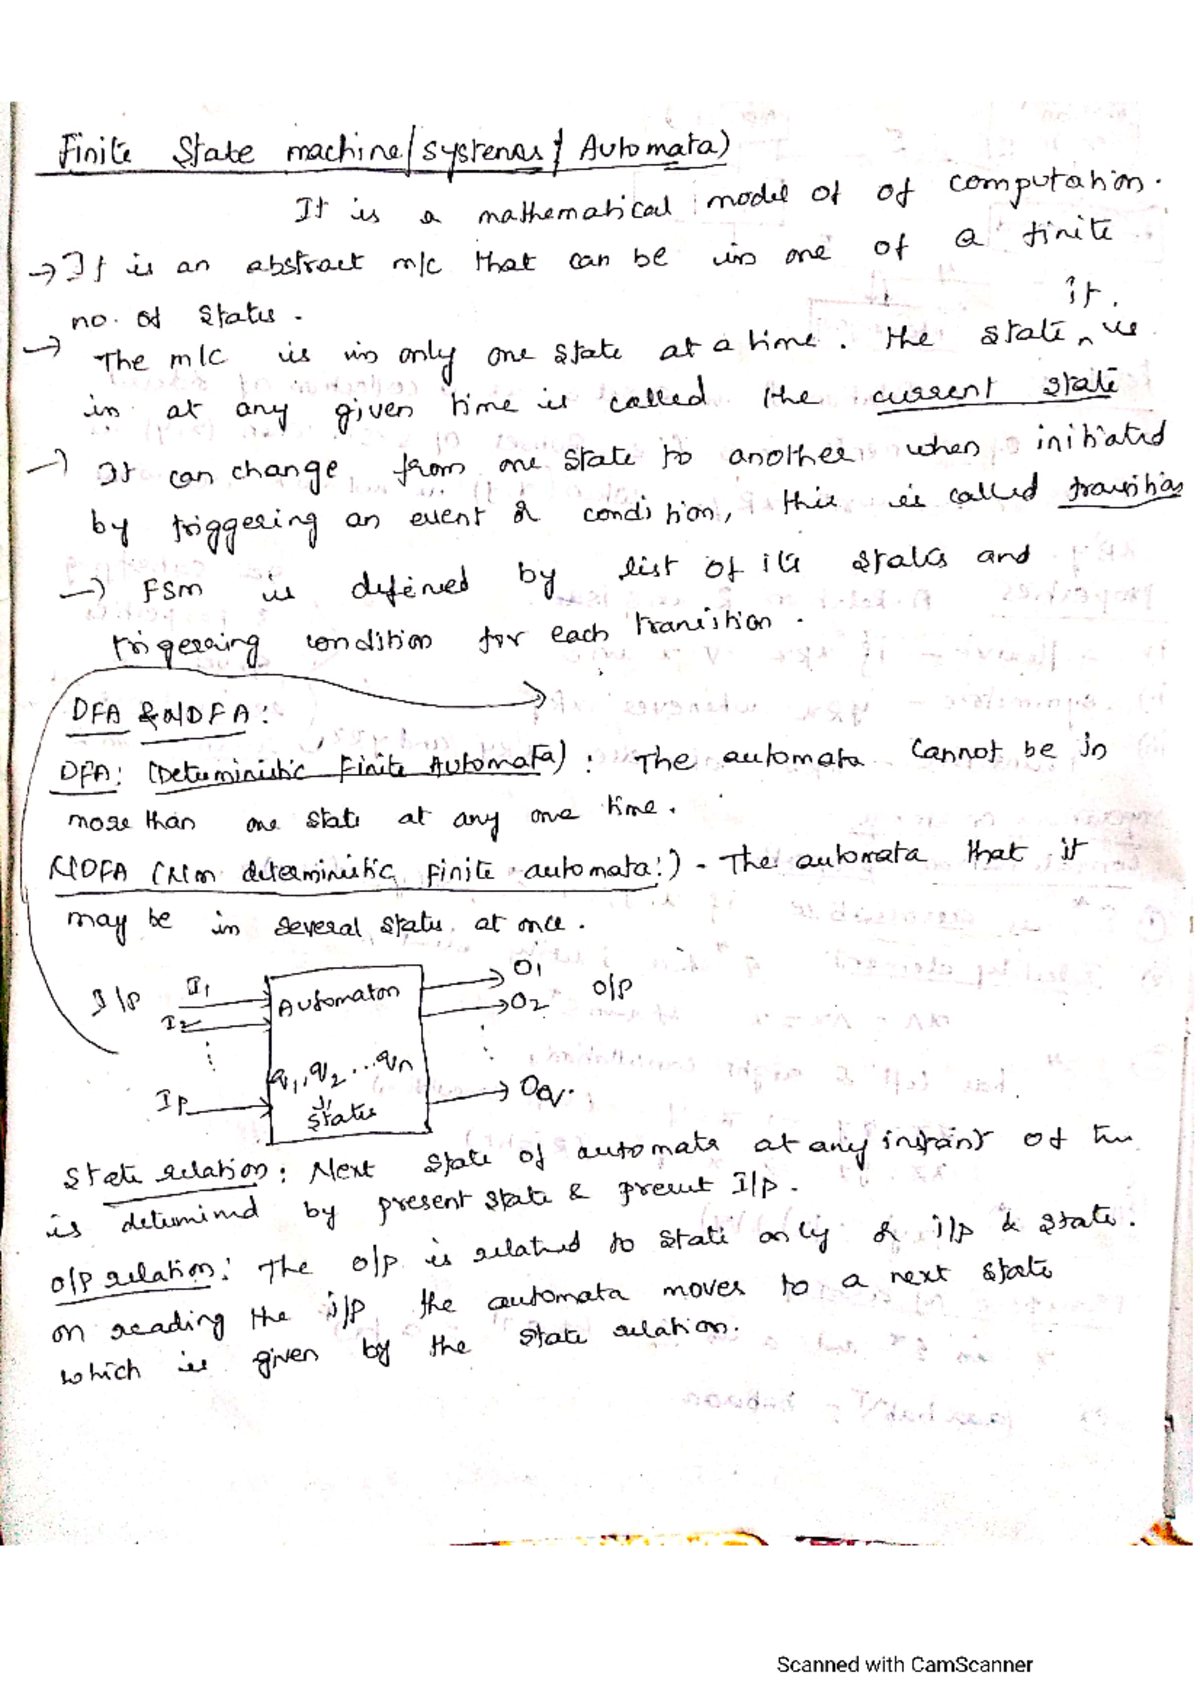 Finite State machine/systems/Automata)
It is a mathematical model of of computation.
→ It is an abstract m/c that can be in one of a finite
no. of states.
→ The m/c is in only one state at a time. the state it is
in at any given time is called the current state
→ It can change from one state to another when initiated
by triggering an event & condition, this is called transition
→ FSM is defined by list of its states and
triggering condition for each transition.
DFA & NDFA:
DFA: (Deterministic Finite Automata): The automata cannot be in
more than one state at any one time.
NDFA (Non deterministic finite automata:) - The automata that it
may be in several states at once.
I/P I1 Automaton O1 O/P
I2 O2
q1, q2 ... qn
IP states Oq.
State relation: Next state of automata at any instant of
is determined by present state & present I/p.
o/p relation: The o/p is related to state only & i/p & state.
on reading the i/p the automata moves to a next state
which is given by the state relation.
Scanned with CamScanner